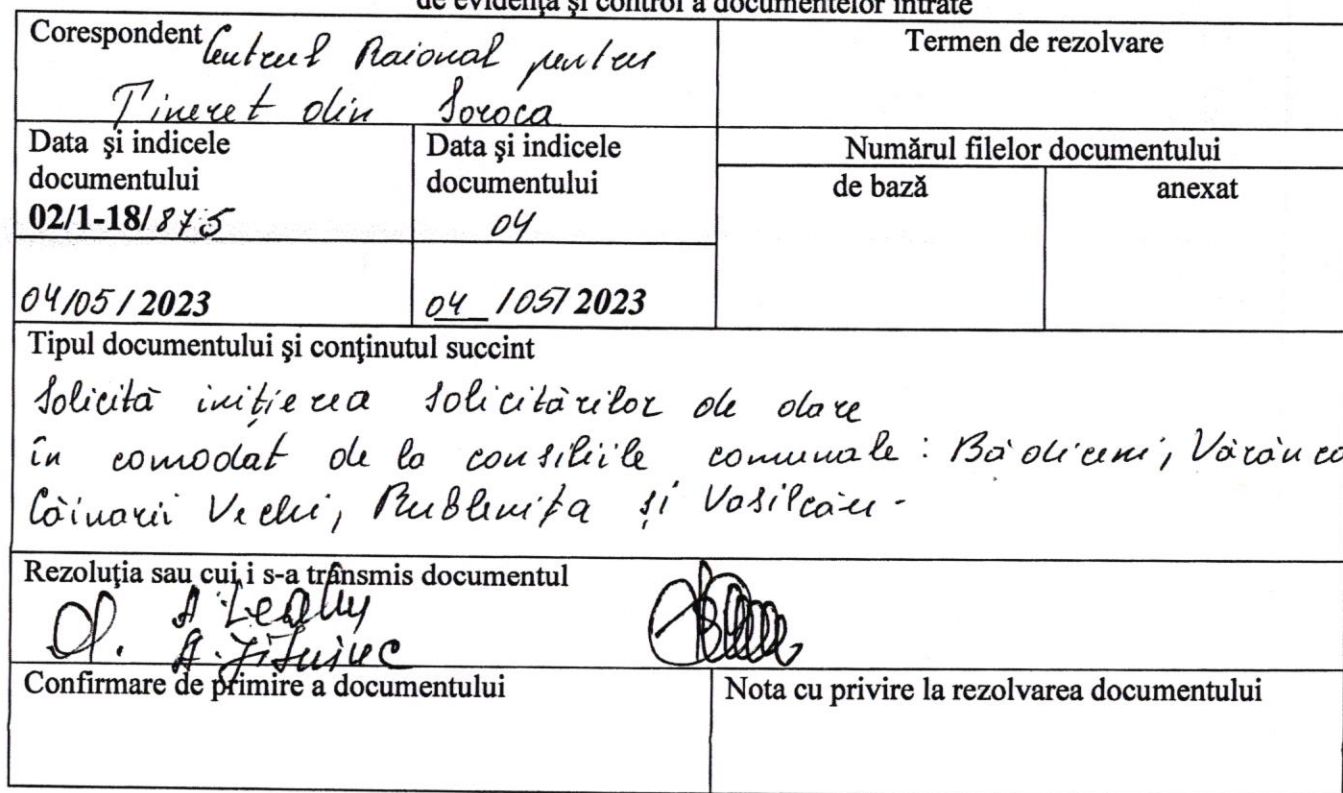 de evidență și control a documentelor intrate
Corespondent Centrul Raional pentru
Tineret din Soroca
Termen de rezolvare
Data și indicele
documentului
02/1-18/875
Data și indicele
documentului
04
Numărul filelor documentului
de bază
anexat
04/05/2023
04 /05/2023
Tipul documentului și conținutul succint
Solicită inițierea solicitărilor de dare
în comodat de la consiliile comunale: Bădiceni, Vărănca
Căinarii Vechi, Rublenița și Vasilcău.
Rezoluția sau cui i s-a trânsmis documentul
d. A
A.
Confirmare de primire a documentului
Nota cu privire la rezolvarea documentului